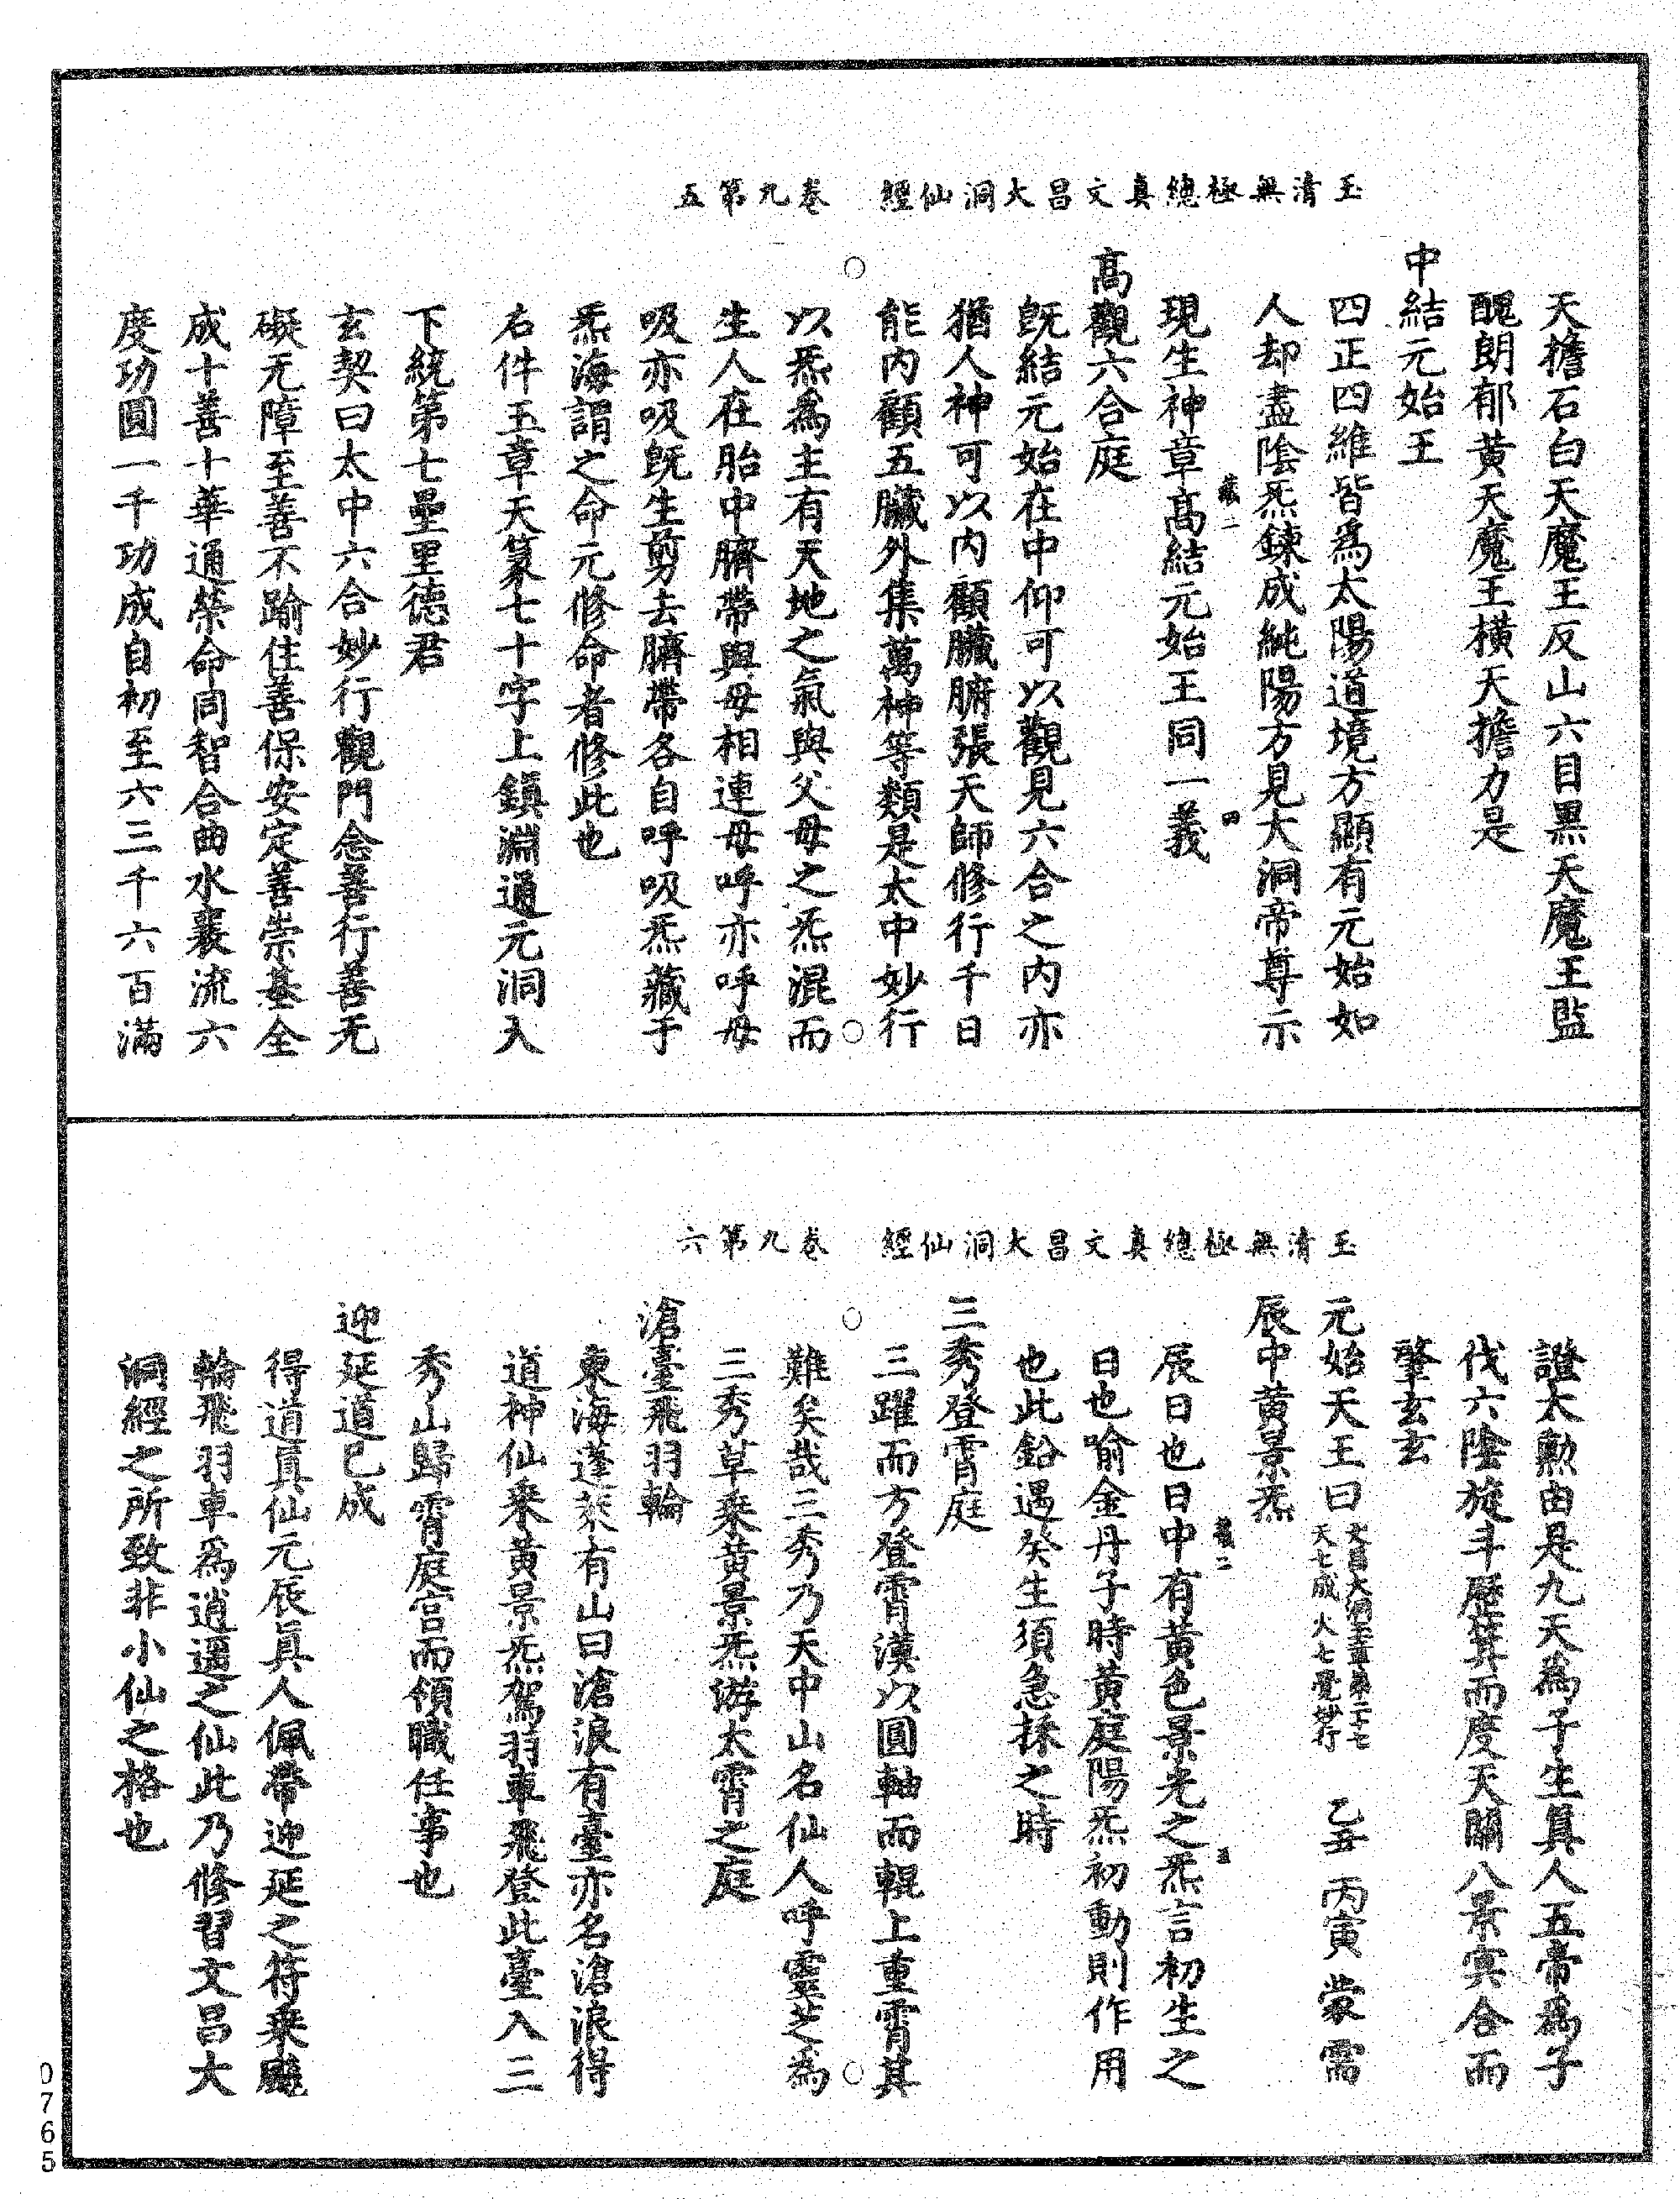 玉清無極總真文昌大洞仙經　卷九第五
天擔石白天魔王反山六目黑天魔王監
醜朗郁黃天魔王橫天擔力是
中結元始王
四正四維皆爲太陽道境方顯有元始如
人却盡陰炁鍊成純陽方見大洞帝尊示
藏二　四
現生神章高結元始王同一義
高觀六合庭
旣結元始在中仰可以觀見六合之内亦
猶人神可以内顧臟腑張天師修行千日
能内顧五臟外集萬神等類是太中妙行
以炁爲主有天地之氣與父母之炁混而
生人在胎中臍帶與母相連母呼亦呼母
吸亦吸旣生剪去臍帶各自呼吸炁藏于
炁海謂之命元修命者修此也
右件玉章天篆七十字上鎮淵通元洞入
下統第七壘里德君
玄契曰太中六合妙行觀門念善行善无
礙无障至善不踰住善保安定善崇基全
成十善十華通榮命同智合曲水襄流六
度功圓一千功成自初至六三千六百滿
玉清無極總真文昌大洞仙經　卷九第六
證太勳由是九天為子生眞人五帝爲子
伐六陰旋斗曆箕而度天關八景㝠合而
肇玄玄
元始天王曰文昌大洞玉章第二十七天七成火七覺妙行　乙丑　丙寅　蒙　需
辰中黃景炁
藏二　五
辰日也日中有黃色景光之炁言初生之
日也喻金丹子時黃庭陽炁初動則作用
也此鉛遇癸生須急採之時
三秀登霄庭
三躍而方登霄漢以圓軸而輥上重霄其
難矣哉三秀乃天中山名仙人呼靈芝為
三秀草乘黃景炁游太霄之庭
滄臺飛羽輪
東海蓬萊有山曰滄浪有臺亦名滄浪得
道神仙乘黃景炁駕羽車飛登此臺入三
秀山歸霄庭宮而領職任事也
迎延道已成
得道眞仙元辰眞人佩帶迎延之符乘飈
輪飛羽車爲逍遥之仙此乃修習文昌大
洞經之所致非小仙之格也
0765